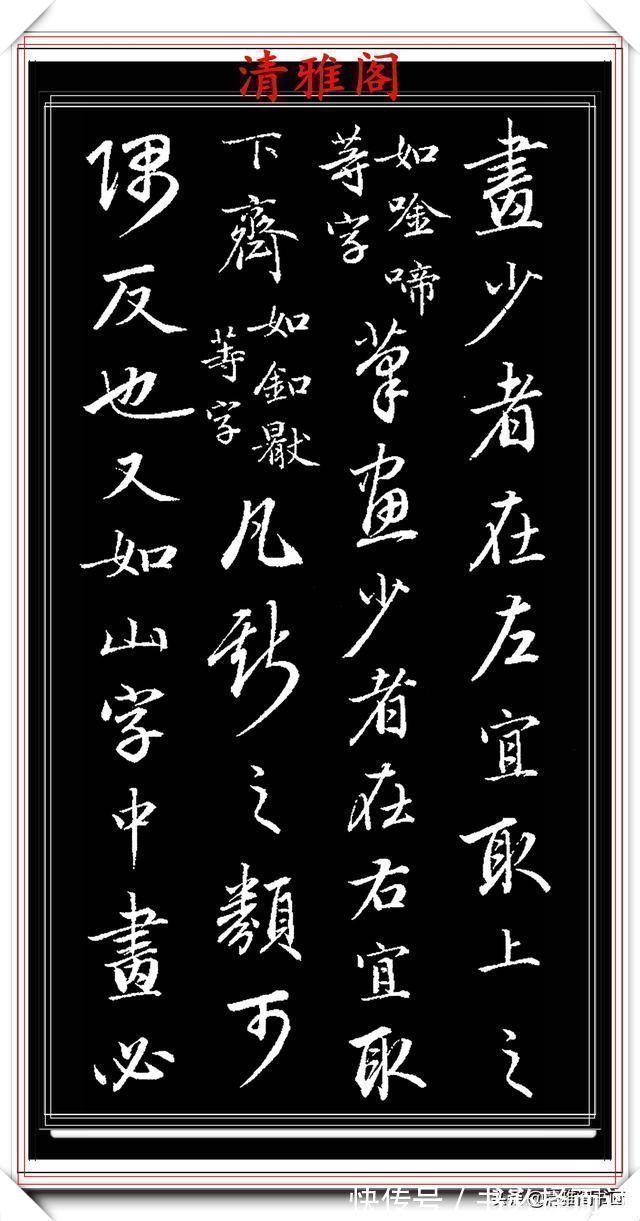 清雅阁
畫少者在左宜取上之
如唫啼
等字
筆畫少者在右宜取
下齊
如釦
等字
凡斯之類可
隅反也又如山字中畫必
快传号/书弘怪师